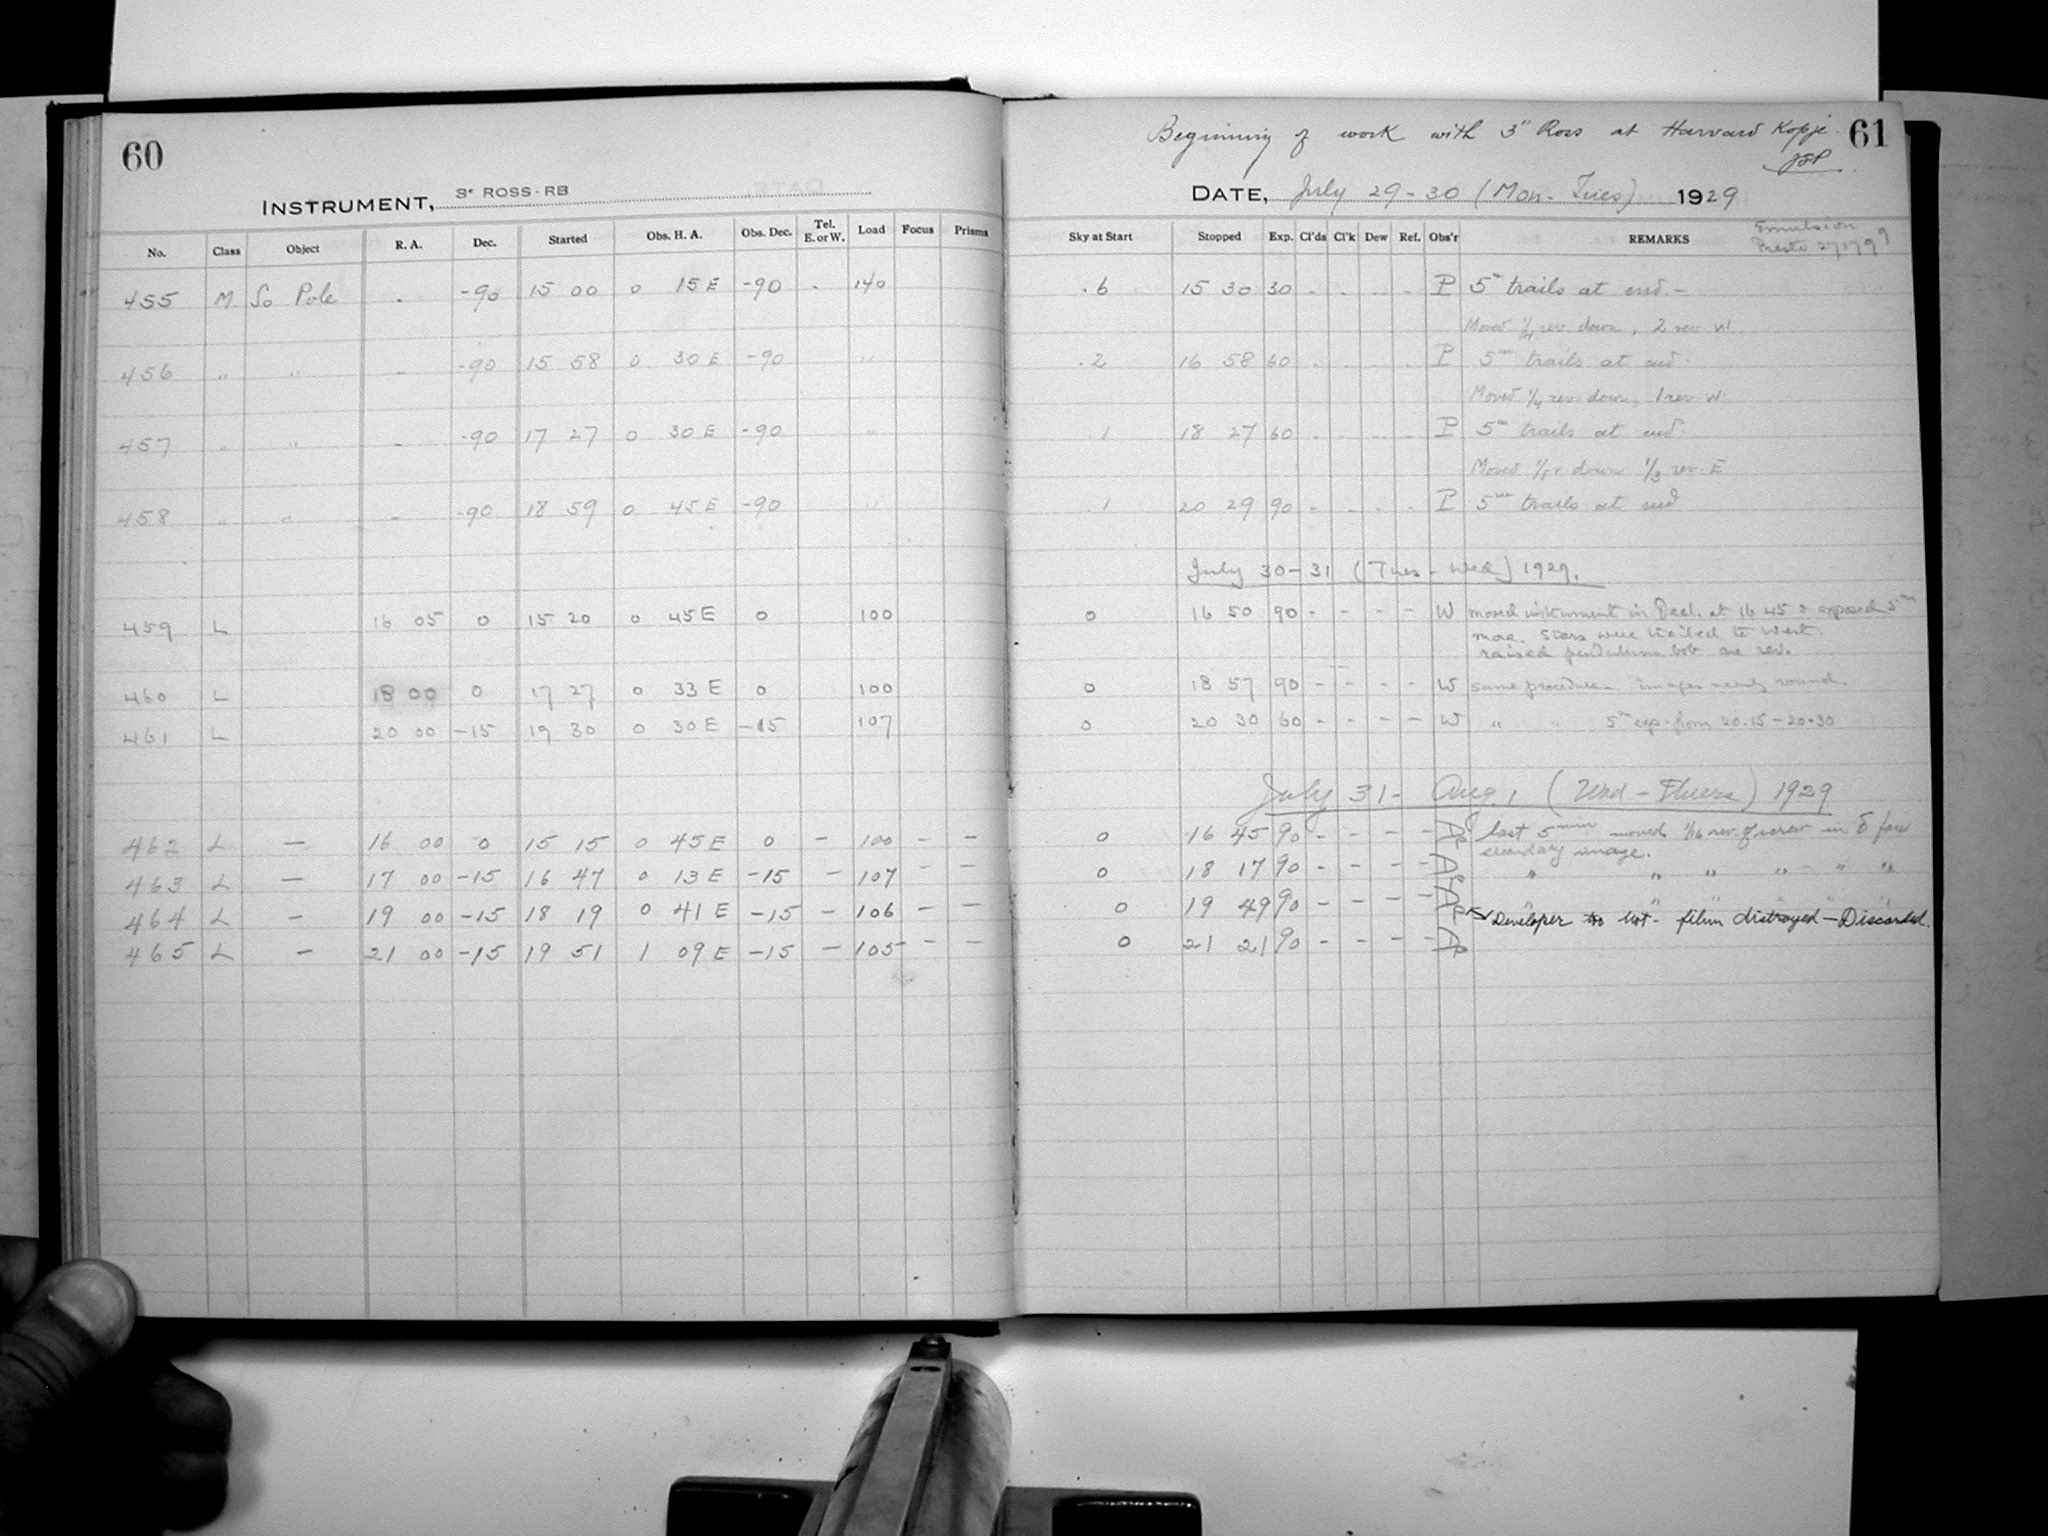 60
INSTRUMENT, 3" ROSS-RB
No. Class Object R. A. Dec. Started Obs. H. A. Obs. Dec. Tel. E. or W. Load Focus Prisms
455 M So Pole - -90 15 00 0 15 E -90 - 140
456 " " - -90 15 58 0 30 E -90 "
457 " " - -90 17 27 0 30 E -90 "
458 " " - -90 18 59 0 45 E -90 "
459 L 16 05 0 15 20 0 45 E 0 100
460 L 18 00 0 17 27 0 33 E 0 100
461 L 20 00 -15 19 30 0 30 E -15 107
462 L — 16 00 0 15 15 0 45 E 0 — 100 — —
463 L — 17 00 -15 16 47 0 13 E -15 — 107 — —
464 L — 19 00 -15 18 19 0 41 E -15 — 106 — —
465 L — 21 00 -15 19 51 1 09 E -15 — 105 — —
Beginning of work with 3" Ross at Harvard Kopje. 61
DATE, July 29-30 (Mon-Tues) 1929
Emulsion
Sky at Start Stopped Exp. Cl'ds Cl'k Dew Ref. Obs'r REMARKS
.6 15 30 30 - - - - P 5m trails at end.-
Moved 1/4 rev. down, 2 rev W.
.2 16 58 60 - - - - P 5m trails at end.
Moved 1/4 rev down, 1 rev W.
.1 18 27 60 - - - - P 5m trails at end.
Moved down 1/3 rev. E
.1 20 29 90 - - - - P 5m trails at end
July 30-31 (Tues - Wed) 1929.
0 16 50 90 - - - - W moved instrument in Decl. at 16 45 & exposed 5m
more. Stars were trailed to West.
raised pendulum bob one rev.
0 18 57 90 - - - - W same procedure. images nearly round.
0 20 30 60 - - - - W " " 5m exp. from 20.15-20.30
July 31 - Aug. 1 (Wed - Thurs) 1929
0 16 45 90 - - - - last 5min moved 1/16 rev. of screw in δ for
secondary image.
0 18 17 90 - - - - " " " " " "
0 19 49 90 - - - -
Developer too hot - film distroyed - Discarded.
0 21 21 90 - - - -